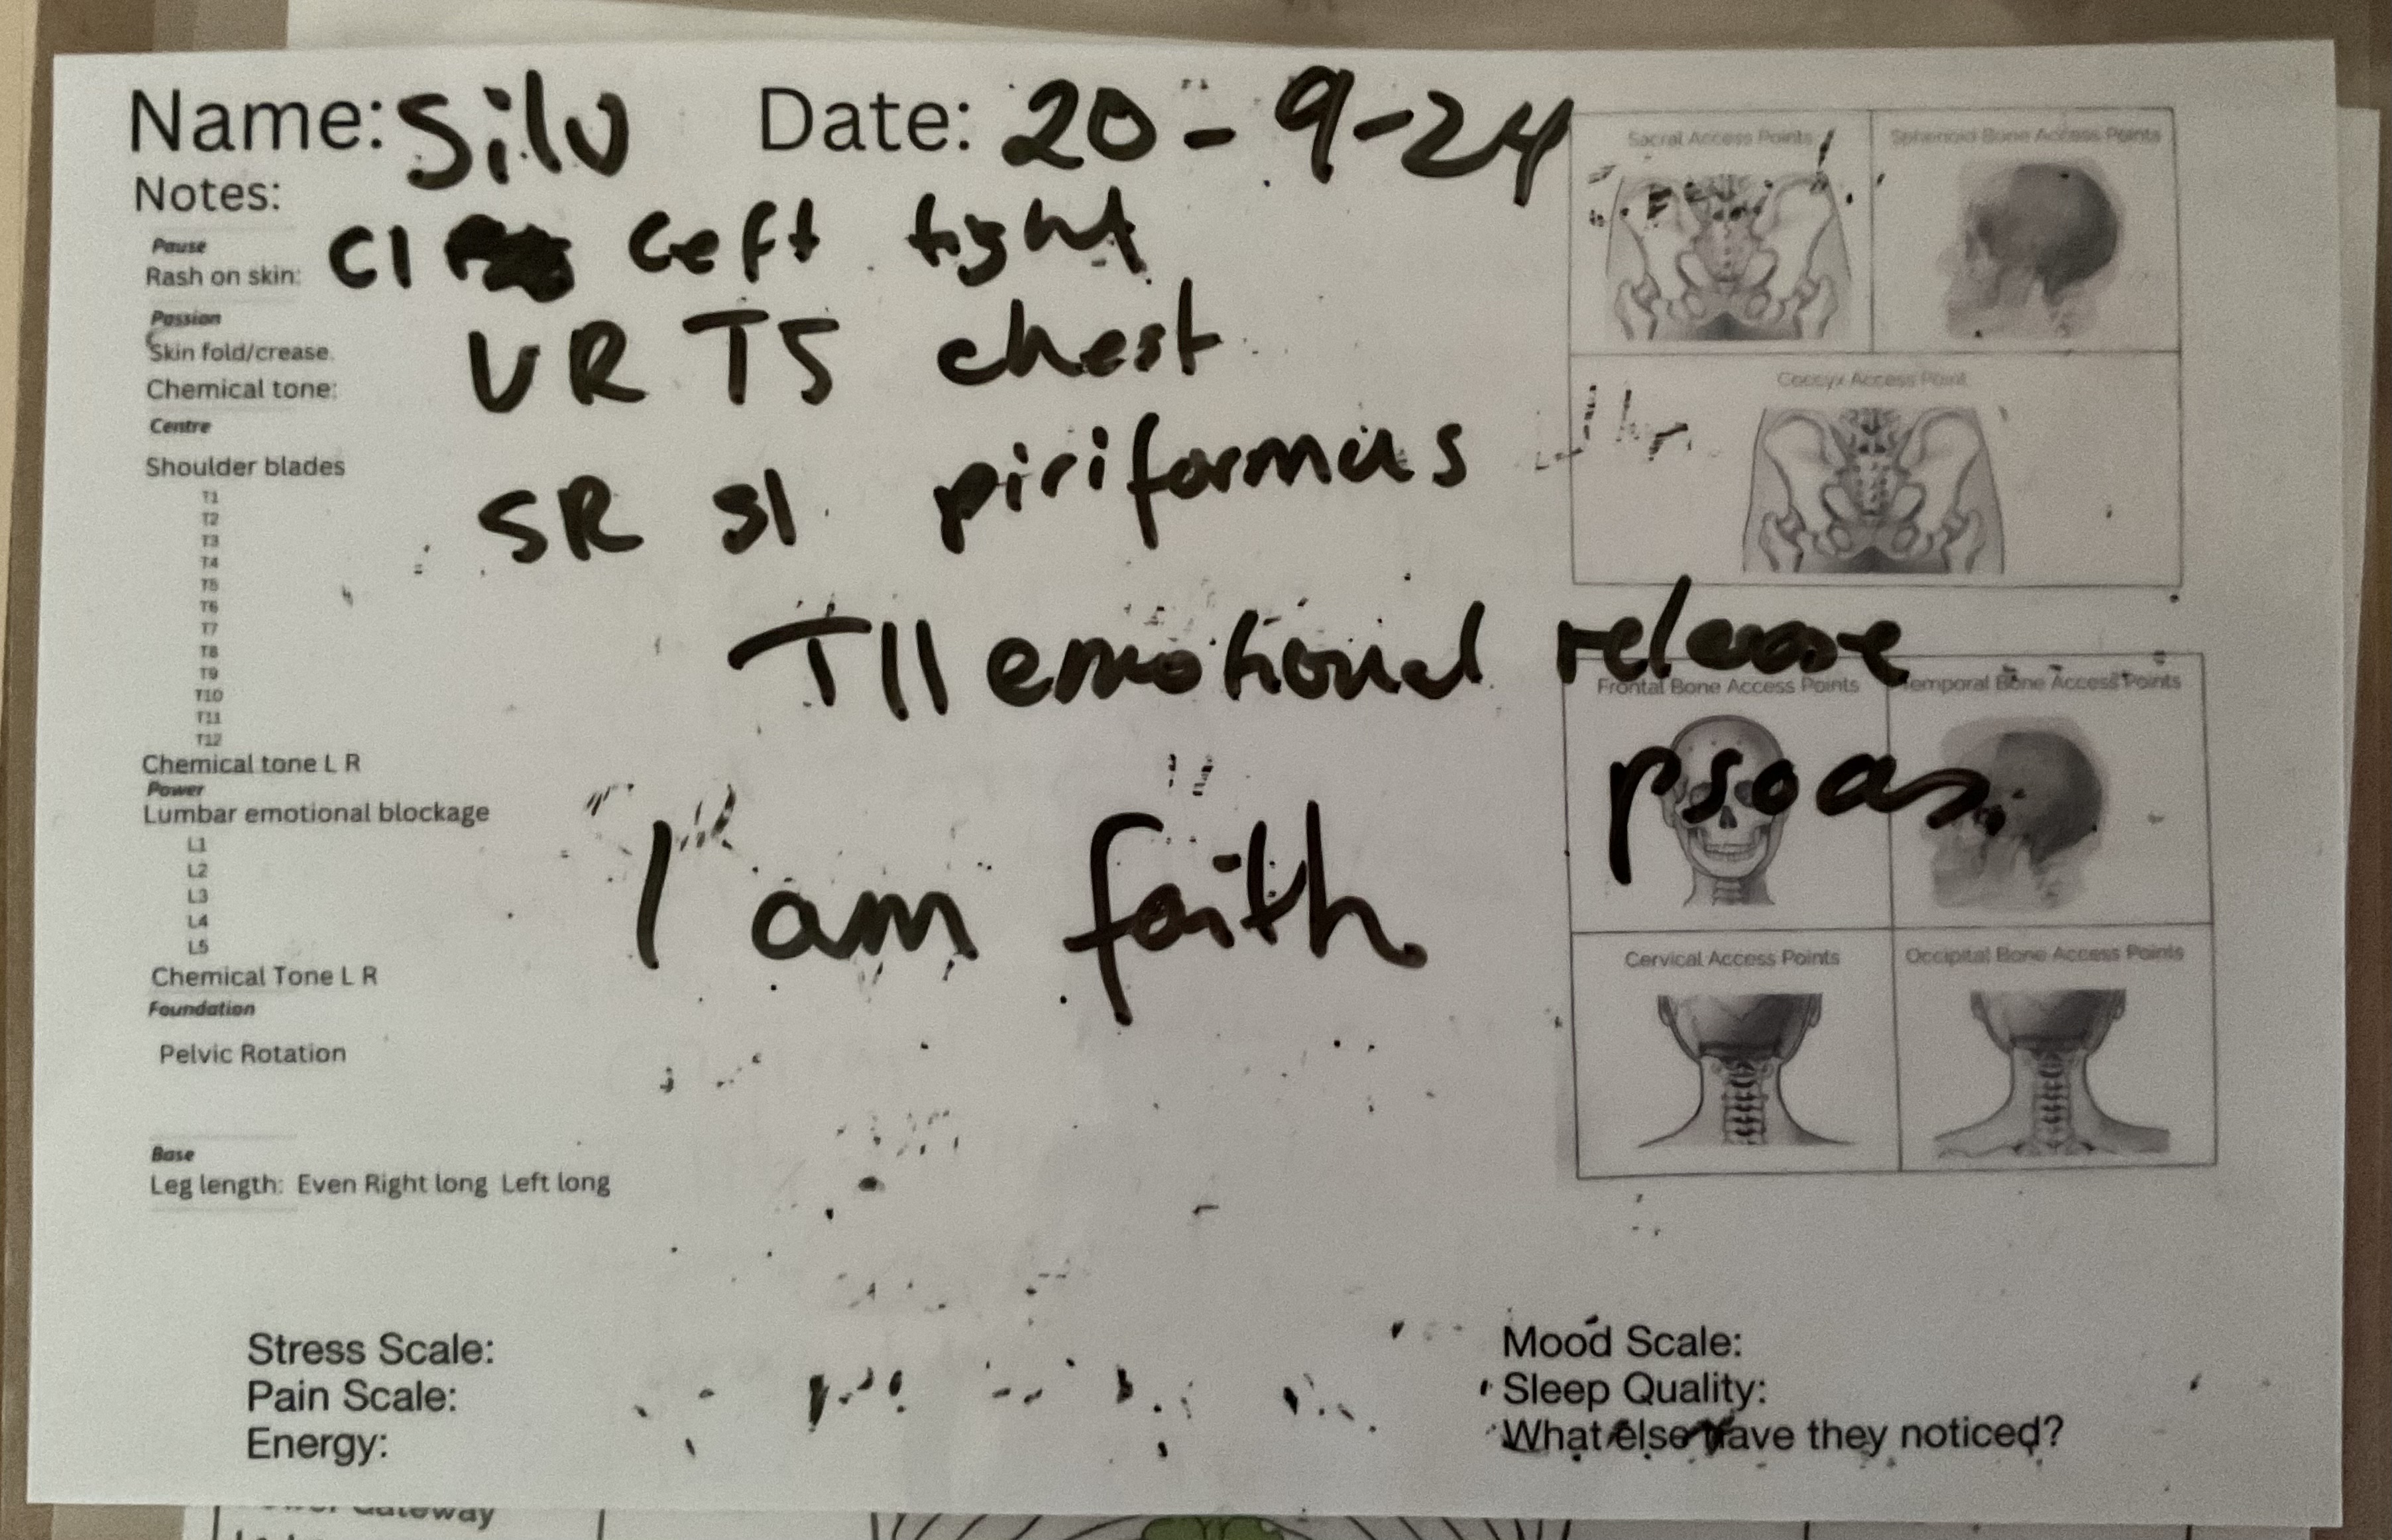 Name: Silv Date: 20-9-24
Notes:
C1 Left tight
Pause
Rash on skin:
Passion
Skin fold/crease.
VR T5 chest
Chemical tone:
Centre
Shoulder blades
SR S1 piriformus
T1
T2
T3
T4
T5
T6
T7
T8
T9
T10
T11
T12
T11 emotional release
psoas
Chemical tone L R
Power
Lumbar emotional blockage
I am faith
L1
L2
L3
L4
L5
Chemical Tone L R
Foundation
Pelvic Rotation
Base
Leg length: Even Right long Left long
Sacral Access Points
Sphenoid Bone Access Points
Coccyx Access Point
Frontal Bone Access Points
Temporal Bone Access Points
Cervical Access Points
Occipital Bone Access Points
Stress Scale:
Pain Scale:
Energy:
Mood Scale:
Sleep Quality:
What else have they noticed?
Gateway